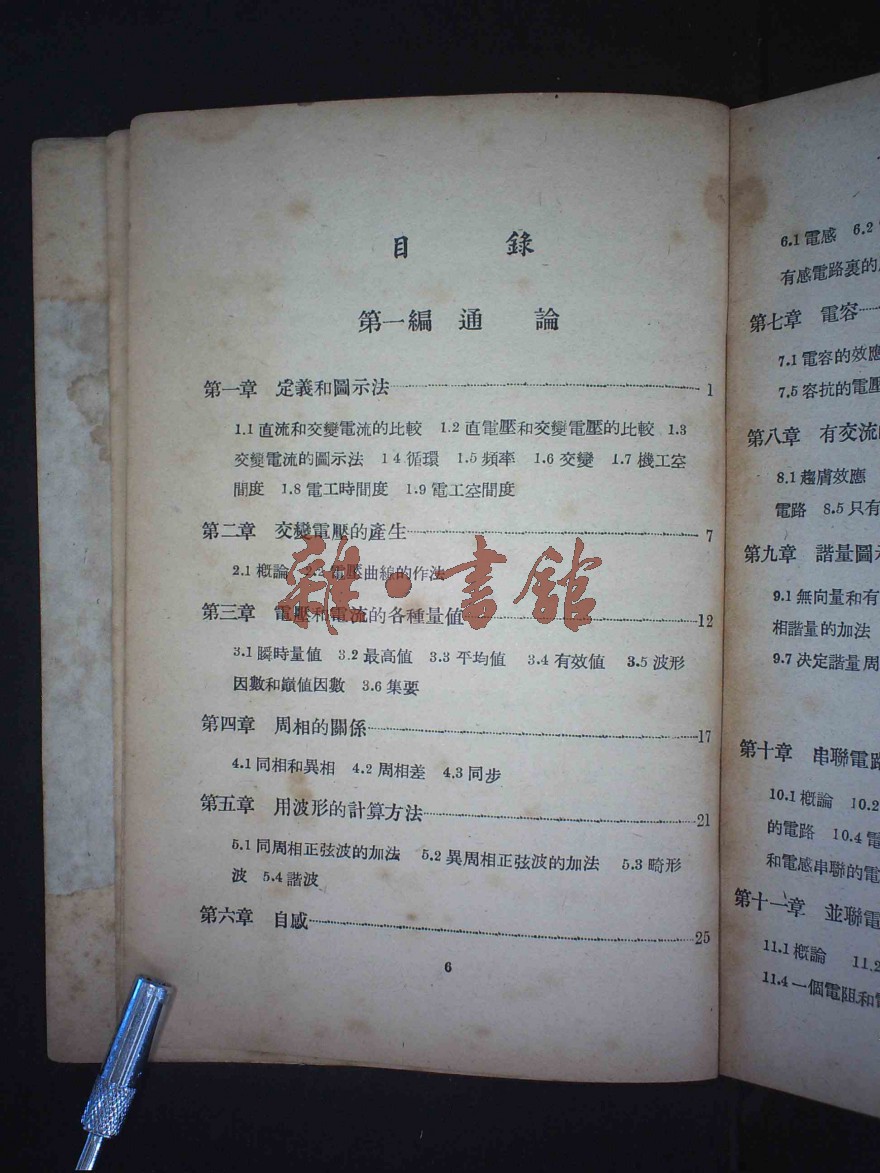 目 錄
第一編 通 論
第一章 定義和圖示法 1
1.1 直流和交變電流的比較 1.2 直電壓和交變電壓的比較 1.3
交變電流的圖示法 1.4 循環 1.5 頻率 1.6 交變 1.7 機工空
間度 1.8 電工時間度 1.9 電工空間度
第二章 交變電壓的產生 7
2.1 概論 2.2 電壓曲線的作法
第三章 電壓和電流的各種量值 12
3.1 瞬時量值 3.2 最高值 3.3 平均值 3.4 有效值 3.5 波形
因數和巔值因數 3.6 集要
第四章 周相的關係 17
4.1 同相和異相 4.2 周相差 4.3 同步
第五章 用波形的計算方法 21
5.1 同周相正弦波的加法 5.2 異周相正弦波的加法 5.3 畸形
波 5.4 諧波
第六章 自感 25
6
雜·書館
6.1 電感 6.2
有感電路裏的
第七章 電容
7.1 電容的效應
7.5 容抗的電壓
第八章 有交流
8.1 趨膚效應
電路 8.5 只有
第九章 諧量圖示
9.1 無向量和有
相諧量的加法
9.7 決定諧量周
第十章 串聯電路
10.1 概論 10.2
的電路 10.4 電
和電感串聯的電
第十一章 並聯電
11.1 概論 11.2
11.4 一個電阻和電